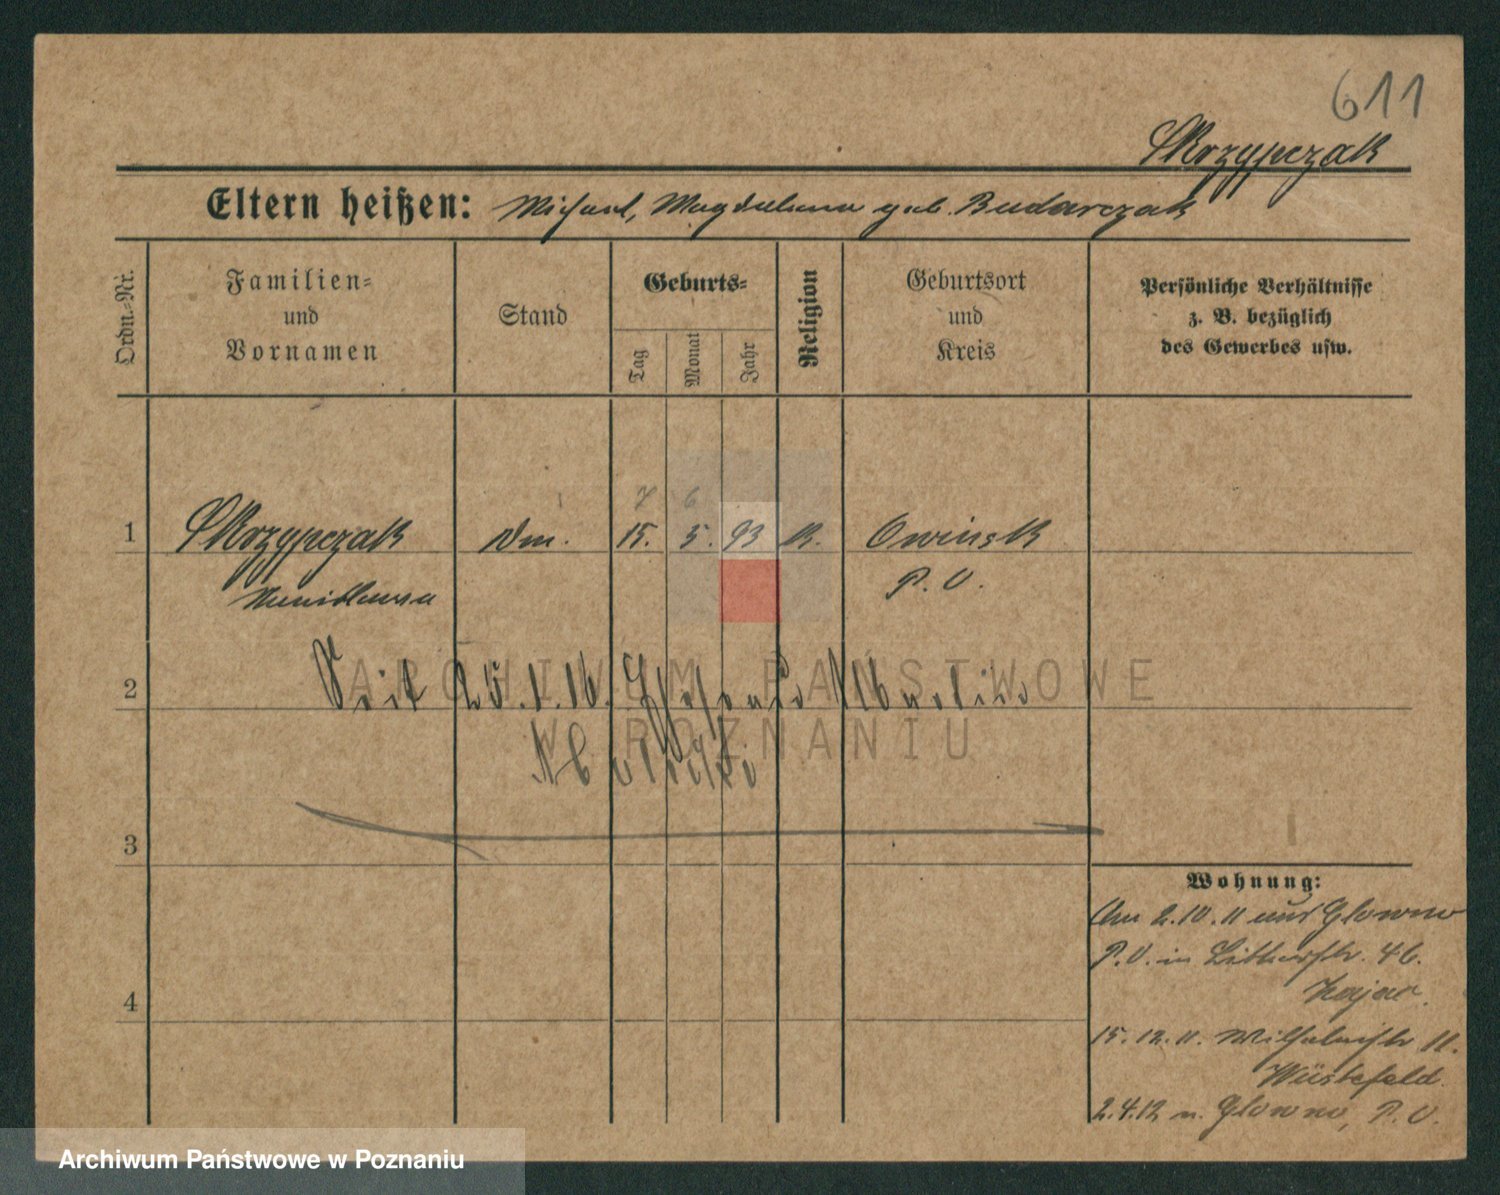 611
Skrzypczak
Eltern heißen: Michael, Magdalena geb. Budarczak
Ordn.-Nr.
Familien-
und
Vornamen
Stand
Geburts-
Tag
Monat
Jahr
Religion
Geburtsort
und
Kreis
Persönliche Verhältnisse
z. B. bezüglich
des Gewerbes usw.
7 6
1 Skrzypczak Dm. 15. 5. 93 K. Owinsk
P. O.
2 Seit 25.1.16. Martin
3
4
Wohnung:
Am 2.10.11 aus Glowno
P.O. in 46.
Zajac.
15.12.11. Wilhelmstr 11.
Wüstefeld.
2.4.12 n. Glowno, P. O.
ARCHIWUM PAŃSTWOWE
W POZNANIU
Archiwum Państwowe w Poznaniu